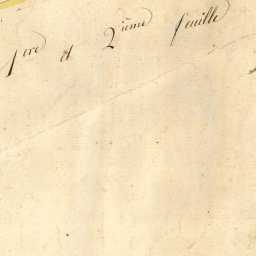 1ere et 2ieme feuille